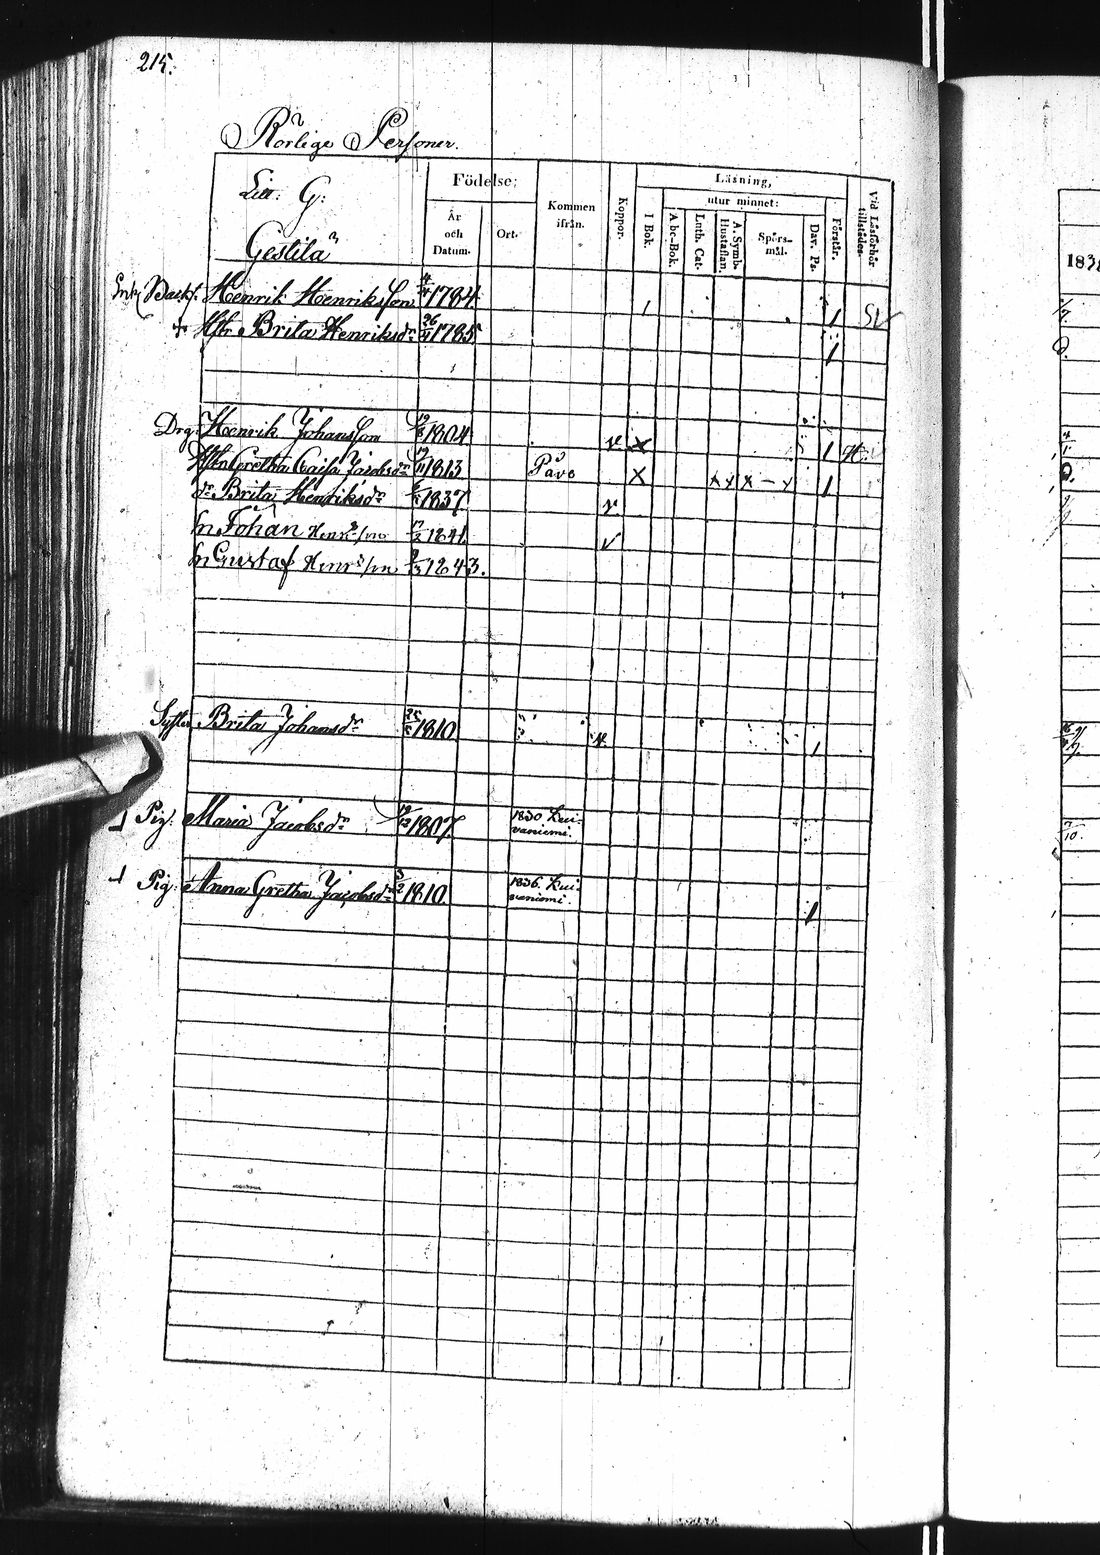 215.
Rörlige Personer.
Litt: G:
Gestilä
Födelse:
År och Datum.
Ort.
Kommen ifrån.
Koppor.
Läsning,
utur minnet:
I Bok.
Abc-Bok.
Luth. Cat.
A. Symb. Hustaflan.
Spörs-mål.
Dav. Ps.
Förstår.
Vid Läsförhör tillstädes.
Henrik Henriksson 4/4 1784
Hstr Brita Henriksdr 26/11 1785
Drg: Henrik Johansson 1804
Hstr Gretha Caisa Jacobsdr 1813 Pavo
dr Brita Henriksdr 1837
Sn Johan Henrs/on 1841
Sn Gustaf Henrs/on 1843.
Syster Brita Johansdr 25 1810
Pig: Maria Jacobsdr 19/12 1807 1830 Kui-
vaniemi.
Pig: Anna Gretha Jacobsdr 3/2 1810 1836. Kui-
vaniemi
1838